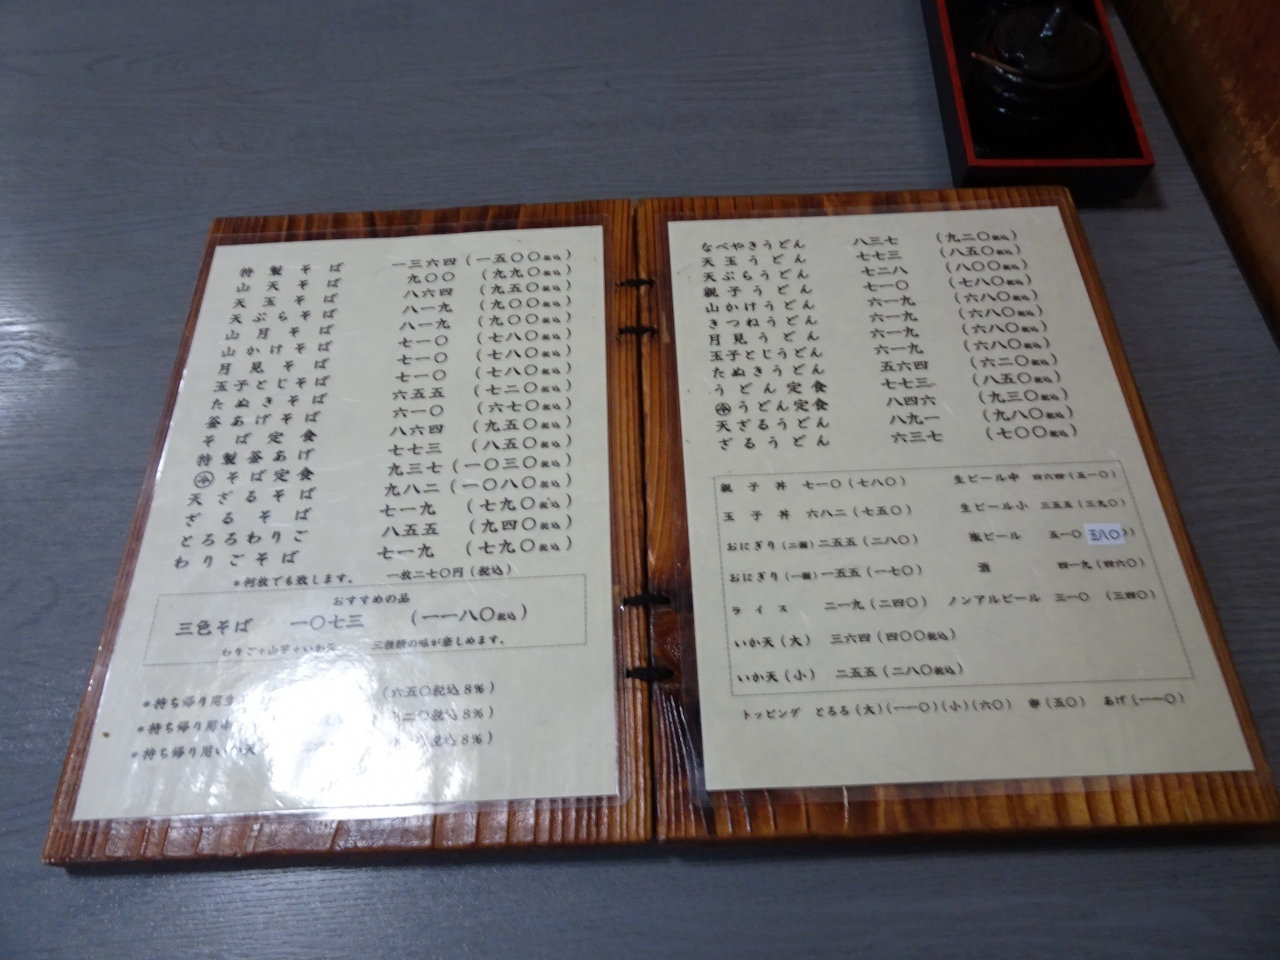 特製そば 一三六四(一五〇〇税込)
山天そば 九〇〇(九九〇税込)
天玉そば 八六四(九五〇税込)
天ぷらそば 八一九(九〇〇税込)
山月そば 八一九(九〇〇税込)
山かけそば 七一〇(七八〇税込)
月見そば 七一〇(七八〇税込)
玉子とじそば 七一〇(七八〇税込)
たぬきそば 六五五(七二〇税込)
釜あげそば 六一〇(六七〇税込)
そば定食 八六四(九五〇税込)
特製釜あげ 七七三(八五〇税込)
そば定食 九三七(一〇三〇税込)
天ざるそば 九八二(一〇八〇税込)
ざるそば 七一九(七九〇税込)
とろろわりご 八五五(九四〇税込)
わりごそば 七一九(七九〇税込)
*何枚でも致します。 一枚二七〇円(税込)
おすすめの品
三色そば 一〇七三 (一一八〇税込)
わりご+山芋+いか天 三種類の味が楽しめます。
*持ち帰り用生 (六五〇税込8%)
*持ち帰り用 二〇税込8%)
*持ち帰り用いか天 税込8%)
なべやきうどん 八三七(九二〇税込)
天玉うどん 七七三(八五〇税込)
天ぷらうどん 七二八(八〇〇税込)
親子うどん 七一〇(七八〇税込)
山かけうどん 六一九(六八〇税込)
きつねうどん 六一九(六八〇税込)
月見うどん 六一九(六八〇税込)
玉子とじうどん 六一九(六八〇税込)
たぬきうどん 五六四(六二〇税込)
うどん定食 七七三(八五〇税込)
うどん定食 八四六(九三〇税込)
天ざるうどん 八九一(九八〇税込)
ざるうどん 六三七(七〇〇税込)
親子丼 七一〇(七八〇) 生ビール中 四六四(五一〇)
玉子丼 六八二(七五〇) 生ビール小 三五五(三九〇)
おにぎり(二個)二五五(二八〇) 瓶ビール 五一〇
おにぎり(一個)一五五(一七〇) 酒 四一九(四六〇)
ライス 二一九(二四〇) ノンアルビール 三一〇 (三四〇)
いか天(大) 三六四(四〇〇税込)
いか天(小) 二五五(二八〇税込)
トッピング とろろ(大)(一一〇)(小)(六〇) 卵(五〇) あげ(一一〇)